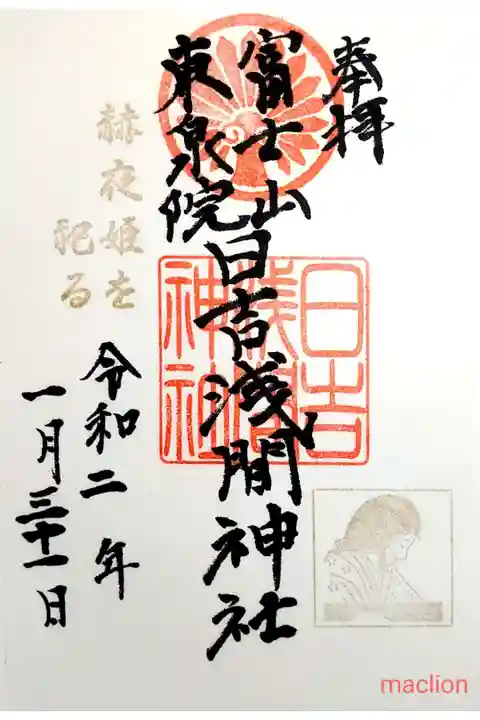 奉拝
富士山
東泉院
日吉浅間神社
日吉
浅間
神社
赫夜姫を
祀る
令和二年
一月三十一日
maclion